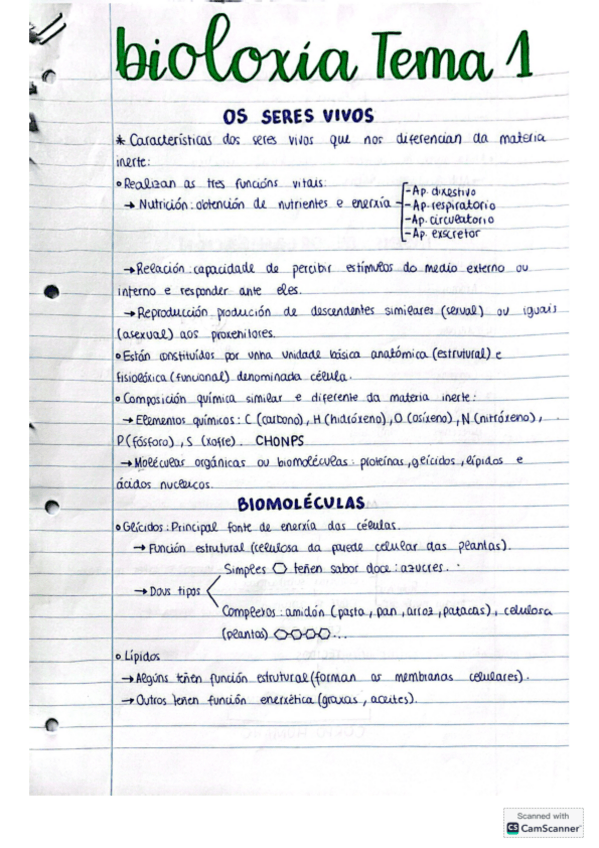 bioloxía Tema 1
OS SERES VIVOS
* Características dos seres vivos que nos diferencian da materia
inerte:
• Realizan as tres funcións vitais:
→ Nutrición: obtención de nutrientes e enerxía
- Ap. dixestivo
- Ap. respiratorio
- Ap. circulatorio
- Ap. excretor
→ Relación: capacidade de percibir estímulos do medio externo ou
interno e responder ante eles.
→ Reproducción produción de descendentes similares (sexual) ou iguais
(asexual) aos proxenitores.
• Están constituídos por unha unidade básica anatómica (estrutural) e
fisiolóxica (funcional) denominada célula.
• Composición química similar e diferente da materia inerte:
→ Elementos químicos: C (carbono), H (hidróxeno), O (osíxeno), N (nitróxeno),
P (fósforo), S (xofre). CHONPS
→ Moléculas orgánicas ou biomoléculas: proteínas, glícidos, lípidos e
ácidos nucleicos.
BIOMOLÉCULAS
• Glícidos: Principal fonte de enerxía das células.
→ Función estrutural (celulosa da parede celular das plantas).
Simples teñen sabor doce: azucres.
→ Dous tipos
Complexos: amidón (pasta, pan, arroz, patacas), celulosa
(plantas) ...
• Lípidos
→ Algúns teñen función estrutural (forman as membranas celulares).
→ Outros teñen función enerxética (graxas, aceites).
Scanned with
CS CamScanner